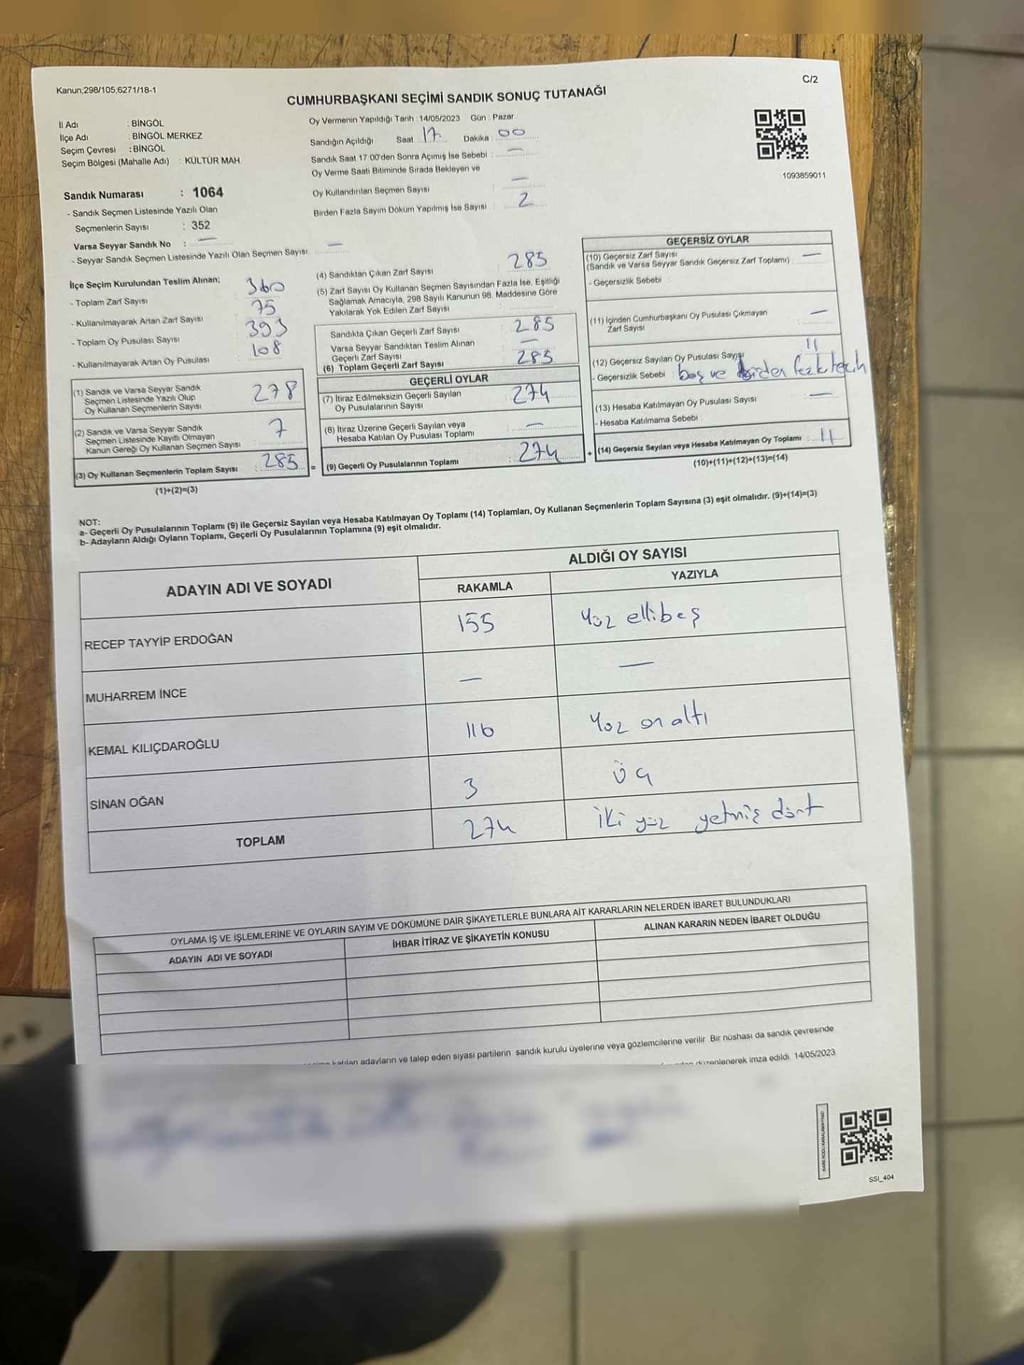 Kanun;298/105;6271/18-1
C/2
CUMHURBAŞKANI SEÇİMİ SANDIK SONUÇ TUTANAĞI
İl Adı : BİNGÖL
İlçe Adı : BİNGÖL MERKEZ
Seçim Çevresi : BİNGÖL
Seçim Bölgesi (Mahalle Adı) : KÜLTÜR MAH
Sandık Numarası : 1064
- Sandık Seçmen Listesinde Yazılı Olan
Seçmenlerin Sayısı : 352
Varsa Seyyar Sandık No : —
- Seyyar Sandık Seçmen Listesinde Yazılı Olan Seçmen Sayısı —
Oy Vermenin Yapıldığı Tarih : 14/05/2023 Gün : Pazar
Sandığın Açıldığı Saat 17 Dakika 00
Sandık Saat 17:00'den Sonra Açımış İse Sebebi —
Oy Verme Saati Bitiminde Sırada Bekleyen ve
Oy Kullandırılan Seçmen Sayısı —
Birden Fazla Sayım Döküm Yapılmış İse Sayısı 2
1093859011
İlçe Seçim Kurulundan Teslim Alınan;
- Toplam Zarf Sayısı 360
- Kullanılmayarak Artan Zarf Sayısı 75
- Toplam Oy Pusulası Sayısı 393
- Kullanılmayarak Artan Oy Pusulası 108
(1) Sandık ve Varsa Seyyar Sandık
Seçmen Listesinde Yazılı Olup
Oy Kullanan Seçmenlerin Sayısı 278
(2) Sandık ve Varsa Seyyar Sandık
Seçmen Listesinde Kayıtlı Olmayan
Kanun Gereği Oy Kullanan Seçmen Sayısı 7
(3) Oy Kullanan Seçmenlerin Toplam Sayısı 285 =
(1)+(2)=(3)
(4) Sandıktan Çıkan Zarf Sayısı 285
(5) Zarf Sayısı Oy Kullanan Seçmen Sayısından Fazla İse, Eşitliği
Sağlamak Amacıyla, 298 Sayılı Kanunun 98. Maddesine Göre
Yakılarak Yok Edilen Zarf Sayısı
Sandıkta Çıkan Geçerli Zarf Sayısı 285
Varsa Seyyar Sandıktan Teslim Alınan
Geçerli Zarf Sayısı —
(6) Toplam Geçerli Zarf Sayısı 285
GEÇERLİ OYLAR
(7) İtiraz Edilmeksizin Geçerli Sayılan
Oy Pusulalarının Sayısı 274
(8) İtiraz Üzerine Geçerli Sayılan veya
Hesaba Katılan Oy Pusulası Toplamı —
(9) Geçerli Oy Pusulalarının Toplamı 274 +
GEÇERSİZ OYLAR
(10) Geçersiz Zarf Sayısı —
(Sandık ve Varsa Seyyar Sandık Geçersiz Zarf Toplamı)
- Geçersizlik Sebebi
(11) İçinden Cumhurbaşkanı Oy Pusulası Çıkmayan
Zarf Sayısı —
(12) Geçersiz Sayılan Oy Pusulası Sayısı 11
- Geçersizlik Sebebi boş ve birden fazla tercih
(13) Hesaba Katılmayan Oy Pusulası Sayısı —
- Hesaba Katılmama Sebebi
(14) Geçersiz Sayılan veya Hesaba Katılmayan Oy Toplamı 11
(10)+(11)+(12)+(13)=(14)
NOT:
a- Geçerli Oy Pusulalarının Toplamı (9) ile Geçersiz Sayılan veya Hesaba Katılmayan Oy Toplamı (14) Toplamları, Oy Kullanan Seçmenlerin Toplam Sayısına (3) eşit olmalıdır. (9)+(14)=(3)
b- Adayların Aldığı Oyların Toplamı, Geçerli Oy Pusulalarının Toplamına (9) eşit olmalıdır.
ADAYIN ADI VE SOYADI ALDIĞI OY SAYISI
RAKAMLA YAZIYLA
RECEP TAYYİP ERDOĞAN 155 Yüz ellibeş
MUHARREM İNCE — —
KEMAL KILIÇDAROĞLU 116 Yüz on altı
SİNAN OĞAN 3 üç
TOPLAM 274 iki yüz yetmiş dört
OYLAMA İŞ VE İŞLEMLERİNE VE OYLARIN SAYIM VE DÖKÜMÜNE DAİR ŞİKAYETLERLE BUNLARA AİT KARARLARIN NELERDEN İBARET BULUNDUKLARI
ADAYIN ADI VE SOYADI İHBAR İTİRAZ VE ŞİKAYETİN KONUSU ALINAN KARARIN NEDEN İBARET OLDUĞU
katılan adayların ve talep eden siyasi partilerin sandık kurulu üyelerine veya gözlemcilerine verilir. Bir nüshası da sandık çevresinde
düzenlenerek imza edildi. 14/05/2023
SSI_404